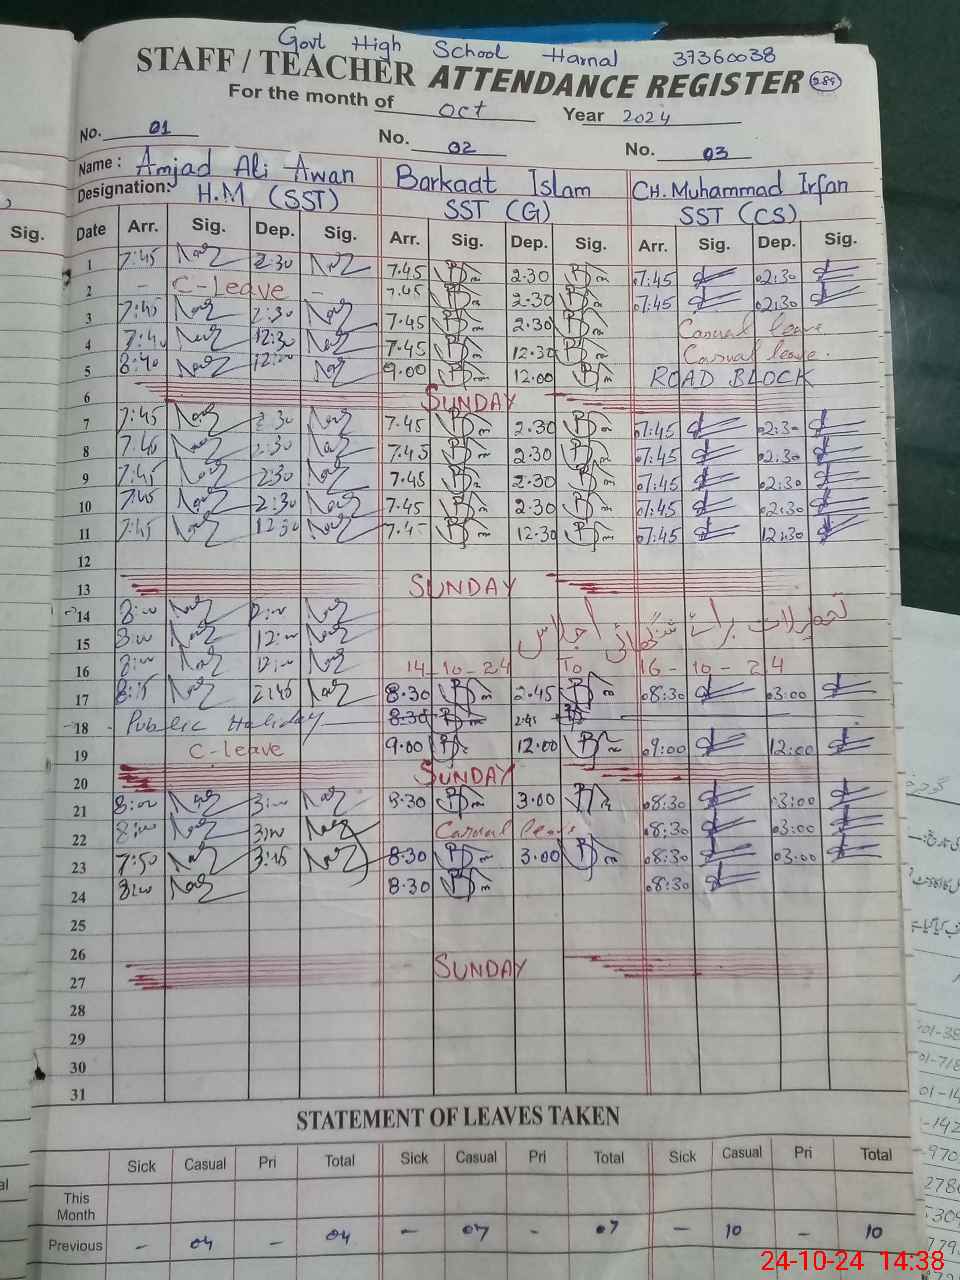 Govt High School Harnal 37360038
STAFF / TEACHER ATTENDANCE REGISTER 289
For the month of Oct Year 2024
No. 01 No. 02 No. 03
Name : Amjad Ali Awan Barkaat Islam CH. Muhammad Irfan
Designation: H.M (SST) SST (G) SST (CS)
Sig. Date Arr. Sig. Dep. Sig. Arr. Sig. Dep. Sig. Arr. Sig. Dep. Sig.
1 7:45 2:30 7.45 2.30 07:45 02:30
2 - C-Leave - 7.45 2.30 07:45 02:30
3 7:45 2:30 7.45 2.30 Casual leave
4 7:40 12:30 7.45 12.30 Casual leave.
5 8:40 12:00 9.00 12.00 ROAD BLOCK
6 SUNDAY
7 7:45 2:30 7.45 2.30 07:45 02:30
8 7:45 2:30 7.45 2.30 07:45 02:30
9 7:45 2:30 7.45 2.30 07:45 02:30
10 7:45 2:30 7.45 2.30 07:45 02:30
11 7:45 12:30 7.45 12.30 07:45 12:30
12
13 SUNDAY
14 8:00
15 8:00 12:00 تعطیلات برائے شنگھائی اجلاس
16 8:00 12:00 14-10-24 To 16-10-24
17 8:15 2:45 8.30 2.45 08:30 03:00
18 Public Holiday 8.30 2.45
19 C-leave 9.00 12.00 09:00 12:00
20 SUNDAY
21 8:00 3:00 8.30 3.00 08:30 03:00
22 8:00 3:00 Casual leave 08:30 03:00
23 7:50 3:15 8.30 3.00 08:30 03:00
24 8:00 8.30 08:30
25
26
27 SUNDAY
28
29
30
31
STATEMENT OF LEAVES TAKEN
Sick Casual Pri Total Sick Casual Pri Total Sick Casual Pri Total
This Month
Previous - 04 04 - 07 - 07 - 10 - 10
24-10-24 14:38